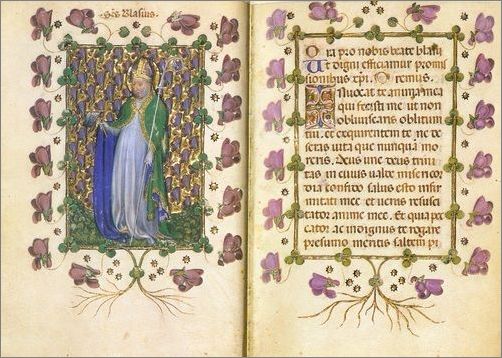 Scs Blasius.
Ora pro nobis beate blasi
Ut digni efficiamur promis
sionibus xpi. Oremus.
Invocat te anima mea
qui fecisti me ut non
obliviscaris oblitum
tui. et exquirentem te ne de
seras vita que nunquam mo
reris. Deus une deus trini
tas in cuius valde misericor
dia confido salus esto infir
mitati mee et verus resusci
tator anime mee. Et quia pec
cator ac indignus te rogare
presumo meritis saltem pi